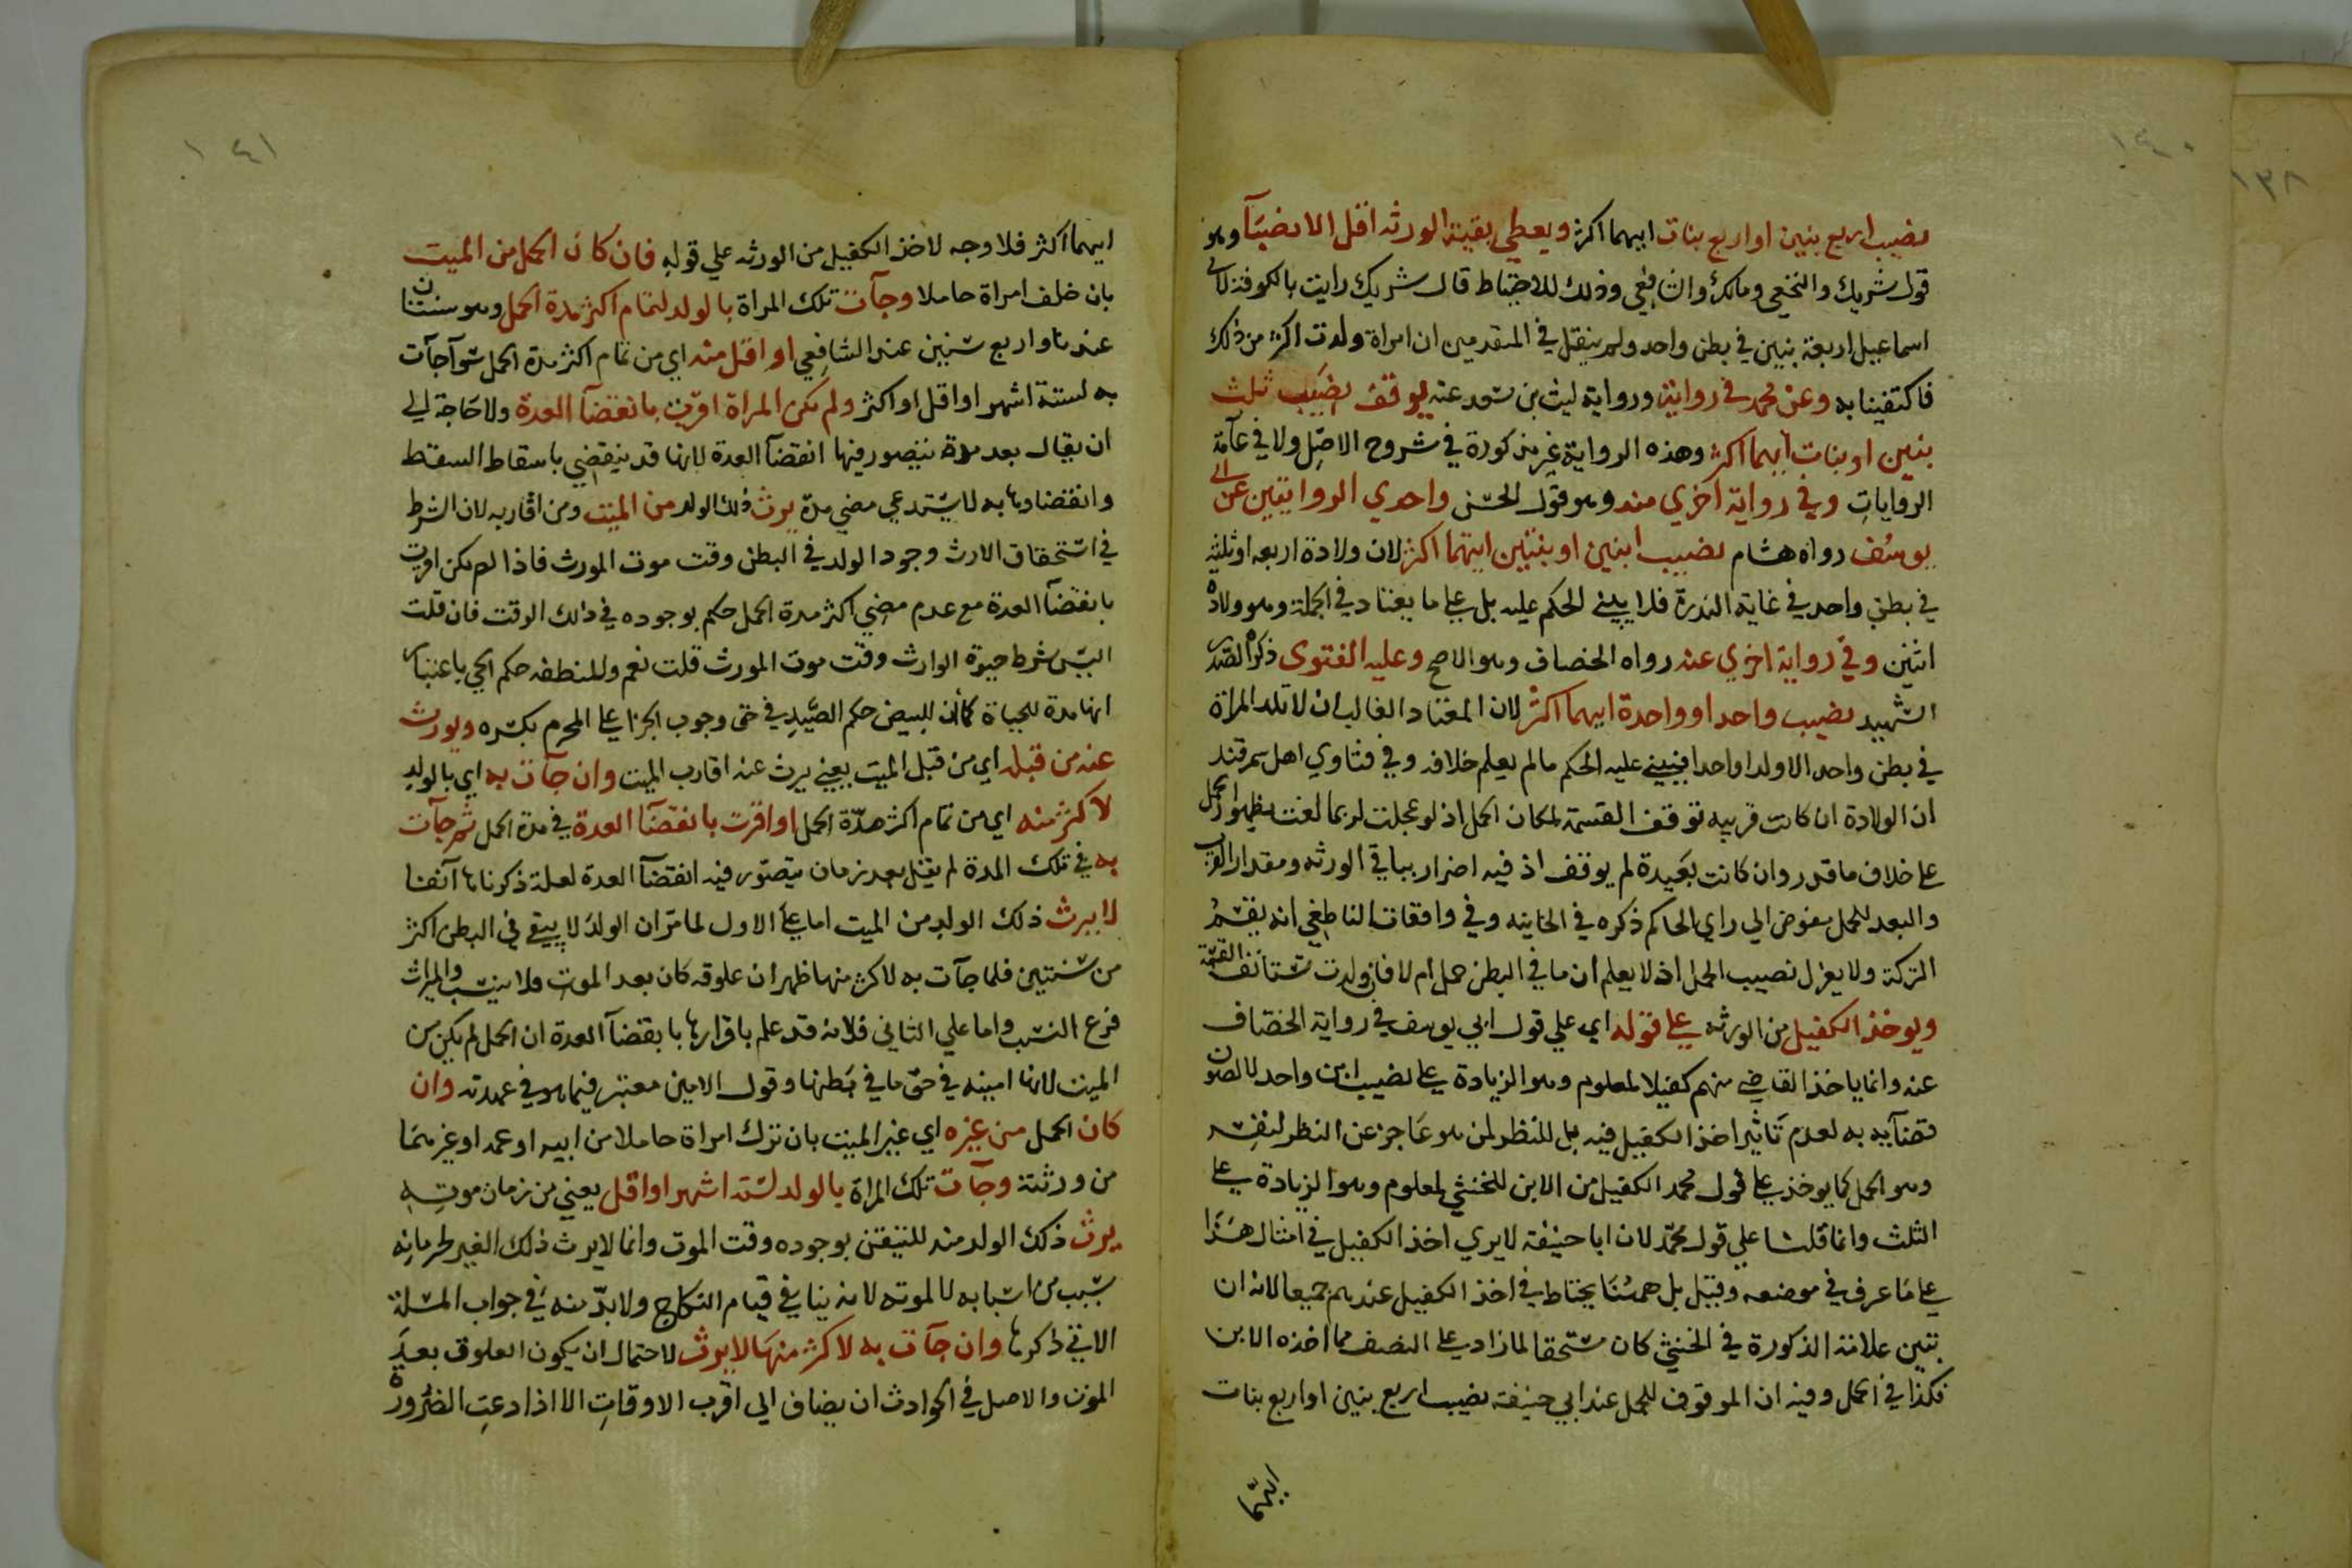 ١٤٠
نصيب اربع بنين او اربع بنات ايهما اكثر ويعطي بقية الورثه اقل الانصبآ وهو
قول شريك والنخعي ومالك والشافعي وذلك للاحتياط قال شريك رايت بالكوفة لابي
اسماعيل اربعة بنين في بطن واحد ولم ينقل في المتقدمين ان امراة ولدت اكثر من ذلك
فاكتفينا به وعن محمد في رواية ورواية ليث بن سعد عنه يوقف نصيب ثلث
بنين او بنات ايهما اكثر وهذه الرواية غير مذكورة في شروح الاصل ولا في عآمة
الروايات وفي رواية اخري منه وهو قول الحسن واحدي الروايتين عن ابي
يوسف رواه هشام نصيب ابنين او بنتين ايتهما اكثر لان ولادة اربعه او ثلثه
في بطن واحد في غاية الندرة فلا يبني الحكم عليه بل علي ما يعتاد في الجملة وهو ولادة
اثنين وفي رواية اخري عنه رواه الخصاف وهو الاصح وعليه الفتوى ذكره الصدر
الشهيد نصيب واحد او واحدة ايهما اكثر لان المعتاد الغالب ان لا تلد المراة
في بطن واحد الا ولدا واحدا فيبني عليه الحكم مالم يعلم خلافه وفي فتاوي اهل سمرقند
ان الولادة ان كانت قريبه توقف القسمة لمكان الحمل اذ لو عجلت لربما لغت بظهور الحمل
علي خلاف ما قدر وان كانت بعيدة لم يوقف اذ فيه اضرار بباقي الورثه ومقدار القرب
والبعد للحمل مفوض الي راي الحاكم ذكره في الخانيه وفي واقعات الناطفي انه يقسم
التركة ولا يعزل نصيب الحمل اذ لا يعلم ان ما في البطن حمل ام لا فان ولدت تستانف القسمة
ويوخذ الكفيل من الورثه علي قوله اي علي قول ابي يوسف في رواية الخصاف
عنه وانما ياخذ القاضي منهم كفيلا لمعلوم وهو الزيادة علي نصيب ابن واحد لا لصون
قضآيه به لعدم تاثير اخذ الكفيل فيه بل للنظر لمن هو عاجز عن النظر لنفسه
وهو الحمل كما يوخذ علي قول محمد الكفيل من الابن للخنثي لمعلوم وهو الزيادة علي
الثلث وانما قلنا علي قول محمد لان ابا حنيفة لا يري اخذ الكفيل في امثال هذا
علي ما عرف في موضعه وقيل بل ههنا يحتاط في اخذ الكفيل عندهم جميعا لانه ان
تبين علامة الذكورة في الخنثي كان مستحقا لما زاد علي النصف مما اخذه الابن
فكذا في الحمل وفيه ان الموقوف للحمل عند ابي حنيفة نصيب اربع بنين او اربع بنات
ايهما
١٤١
ايهما اكثر فلا وجه لاخذ الكفيل من الورثه علي قوله فان كان الحمل من الميت
بان خلف امراة حاملا وجآت تلك المراة بالولد لتمام اكثر مدة الحمل وهو سنتان
عندنا واربع سنين عند الشافعي او اقل منه اي من تمام اكثر مدة الحمل سوآ جآت
به لستة اشهر او اقل او اكثر ولم تكن المراة اقرت بانقضآ العدة ولا حاجة الي
ان يقال بعد مدة يتصور فيها انقضآ العدة لانها قد ينقضي باسقاط السقط
وانقضاوها به لا يستدعي مضي مدة يرث ذلك الولد من الميت ومن اقاربه لان الشرط
في استحقاق الارث وجود الولد في البطن وقت موت المورث فاذا لم تكن اقرت
بانقضآ العدة مع عدم مضي اكثر مدة الحمل حكم بوجوده في ذلك الوقت فان قلت
اليس شرط حيوة الوارث وقت موت المورث قلت نعم وللنطفه حكم الحي باعتبار
انها مدة للحياة كما ان للبيض حكم الصيد في حق وجوب الجزا علي المحرم بكسره ويورث
عنه من قبله اي من قبل الميت يعني يرث عنه اقارب الميت وان جآت به اي بالولد
لاكثر منه اي من تمام اكثر مدة الحمل او اقرت بانقضآ العدة في مدة الحمل ثم جآت
به في تلك المدة لم يقل بعد زمان يتصور فيه انقضآ العدة لعلة ذكرناها آنفا
لا يرث ذلك الولد من الميت اما علي الاول لما مر ان الولد لا يبقي في البطن اكثر
من سنتين فلما جآت به لاكثر منها ظهر ان علوقه كان بعد الموت فلا نسب والميراث
فرع النسب واما علي الثاني فلانه قد علم باقرارها بانقضآ العدة ان الحمل لم يكن من
الميت لانها امينه في حق ما في بطنها وقول الامين معتبر فيما هو في عهدته وان
كان الحمل من غيره اي غير الميت بان ترك امراة حاملا من ابيه او عمه او غيرهما
من ورثته وجآت تلك المراة بالولد لستة اشهر او اقل يعني من زمان موته
يرث ذلك الولد منه للتيقن بوجوده وقت الموت وانما لا يرث ذلك الغير لحرمانه
بسبب من اسبابه لا لموته لانه ينافي قيام النكاح ولا بد منه في جواب المسئلة
الاتي ذكرها وان جآت به لاكثر منها لا يرث لاحتمال ان يكون العلوق بعد
الموت والاصل في الحوادث ان يضاف الي اقرب الاوقات الا اذا دعت الضرورة
١٣٨